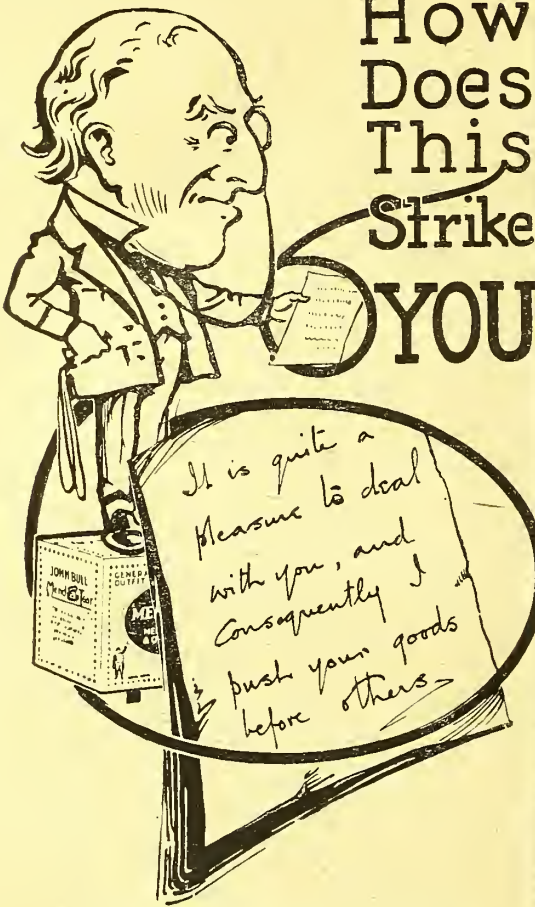 How
Does
This
Strike
YOU
It is quite a
pleasure to deal
with you, and
Consequently I
push your goods
before others
JOHN BULL
GENERAL
OUTFIT